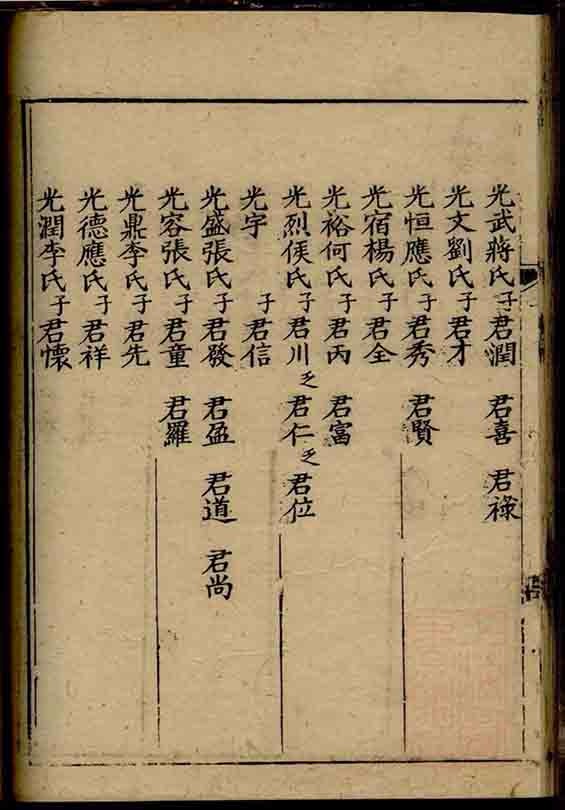 光武蔣氏子君潤 君喜 君祿
光文劉氏子君才
光恒應氏子君秀 君賢
光宿楊氏子君全
光裕何氏子君丙 君富
光烈侯氏子君川乏君仁乏君位
光宇 子君信
光盛張氏子君發 君盈 君道 君尚
光容張氏子君童 君羅
光鼎李氏子君先
光德應氏子君祥
光潤李氏子君懷